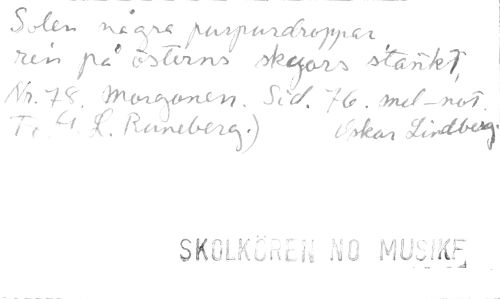 Solen några purpurdroppar
ren på österns skyars stänkt,
Nr. 78. Morgonen. Sid. 76. mel-not.
J. L. Runeberg.) Oskar Lindberg.
SKOLKÖREN NO MUSIKE